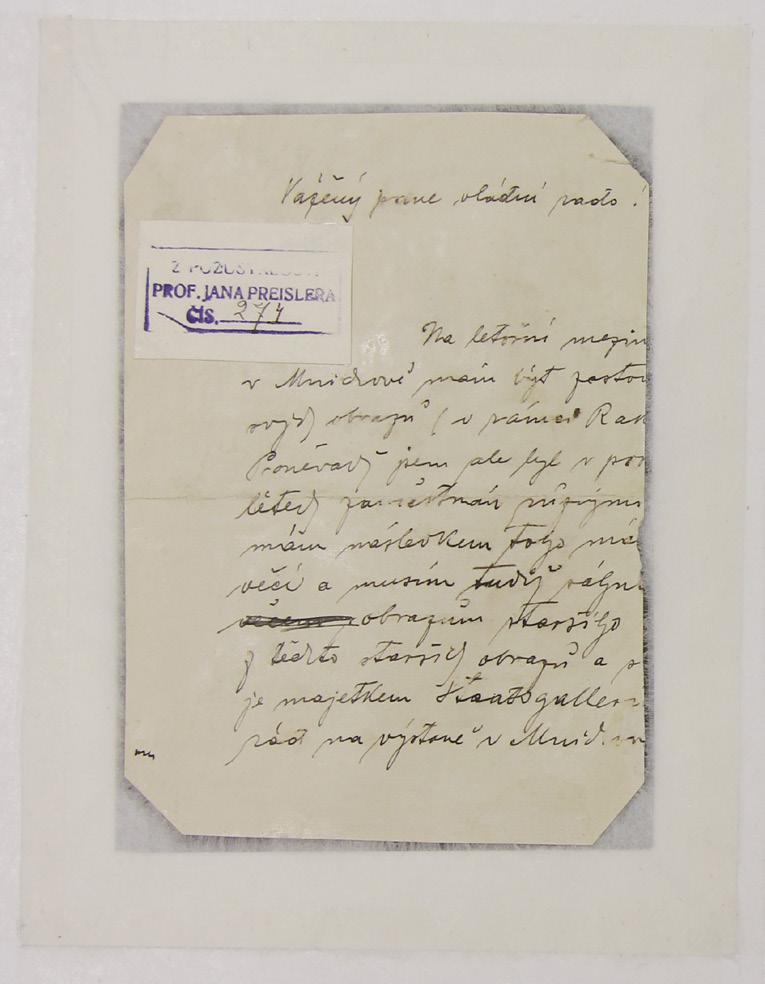 Vážený pane vládní rado!
Z POZŮSTALOSTI
PROF. JANA PREISLERA
ČÍS. 274
Na letošní mezin
v Mnichově mám být zastou
svých obrazů (v rámci Rak
Poněvadž jsem ale byl v po
létech zaměstnán různými
mám následkem toho má
věcí a musím tudíž sáhn
obrazům staršího
z těchto starších obrazů a
je majetkem Staatsgallerie
rád na výstavě v Mnich.